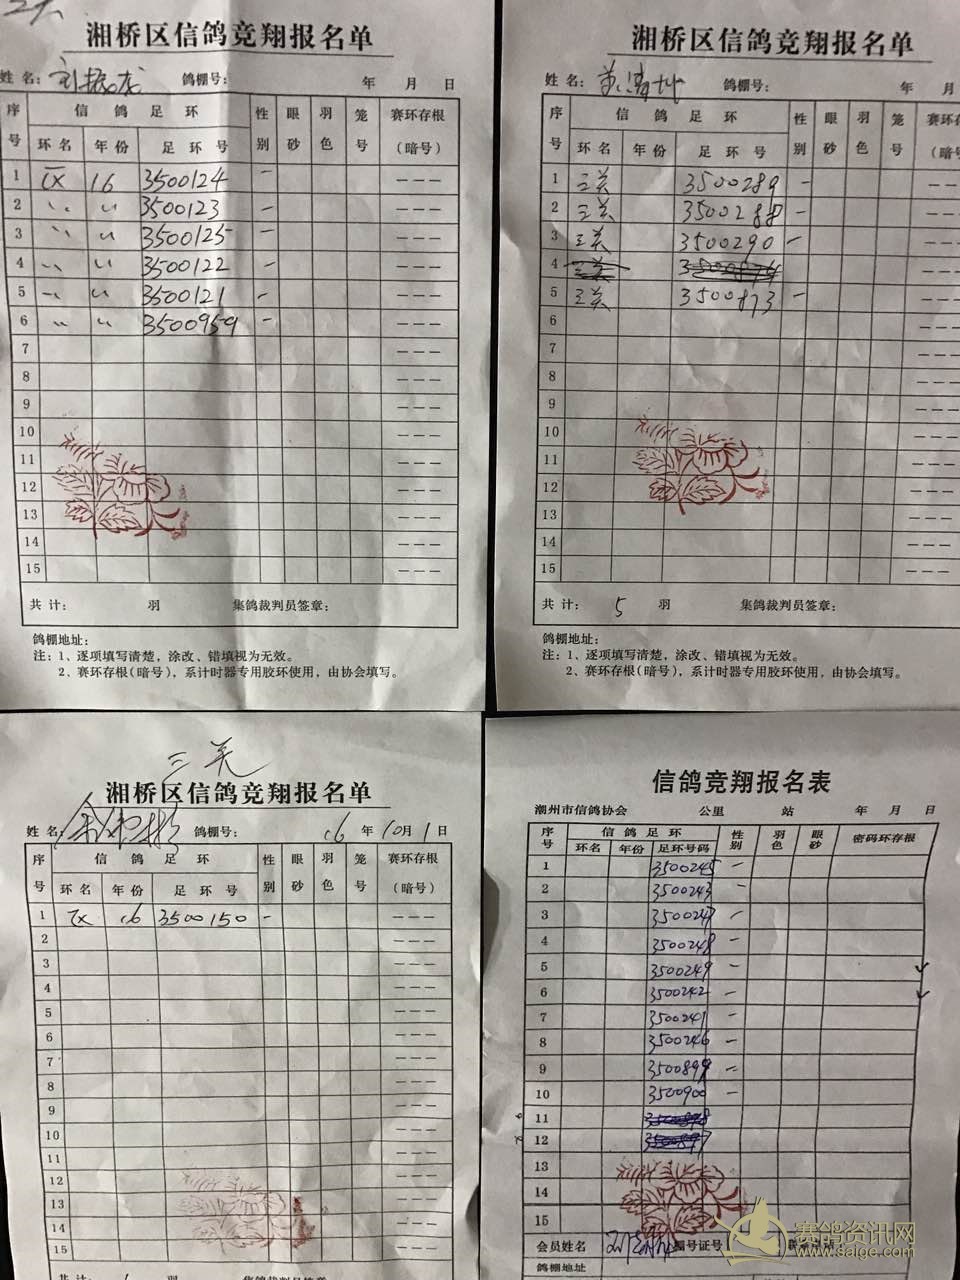 湘桥区信鸽竞翔报名单
姓名： 鸽棚号： 年 月 日
序号 信鸽足环 性别 眼砂 羽色 笼号 赛环存根（暗号）
环名 年份 足环号
1 区 16 3500124 - ---
2 〃 〃 3500123 - ---
3 〃 〃 3500125 - ---
4 〃 〃 3500122 - ---
5 〃 〃 3500121 - ---
6 〃 〃 3500959 - ---
7 ---
8 ---
9 ---
10 ---
11 ---
12 ---
13 ---
14 ---
15 ---
共计： 羽 集鸽裁判员签章：
鸽棚地址：
注：1、逐项填写清楚，涂改、错填视为无效。
2、赛环存根（暗号），系计时器专用胶环使用，由协会填写。
湘桥区信鸽竞翔报名单
姓名： 鸽棚号： 年 月
序号 信鸽足环 性别 眼砂 羽色 笼号 赛环存根（暗号
环名 年份 足环号
1 三关 3500289 - ---
2 三关 3500288 - ---
3 三关 3500290 - ---
4 三关 ---
5 三关 3500873 - ---
6 ---
7 ---
8 ---
9 ---
10 ---
11 ---
12 ---
13 ---
14 ---
15 ---
共计： 5 羽 集鸽裁判员签章：
鸽棚地址：
注：1、逐项填写清楚，涂改、错填视为无效。
2、赛环存根（暗号），系计时器专用胶环使用，由协会填写。
三关
湘桥区信鸽竞翔报名单
姓名： 鸽棚号： 16 年 10 月 1 日
序号 信鸽足环 性别 眼砂 羽色 笼号 赛环存根（暗号）
环名 年份 足环号
1 区 16 3500150 - ---
2 ---
3 ---
4 ---
5 ---
6 ---
7 ---
8 ---
9 ---
10 ---
11 ---
12 ---
13 ---
14 ---
15 ---
共计： 1 羽 集鸽裁判员签章
信鸽竞翔报名表
潮州市信鸽协会 公里 站 年 月 日
序号 信鸽足环 性别 羽色 眼砂 密码环存根
环名 年份 足环号码
1 3500245 -
2 3500243 -
3 3500247 -
4 3500248 -
5 3500249 - ✓
6 3500242 - ✓
7 3500241 -
8 3500246 -
9 3500899 -
10 3500900 -
11 3500898
12 3500897
13
14
15
会员姓名 棚号证号
鸽棚地址
赛鸽资讯网
www.saige.com